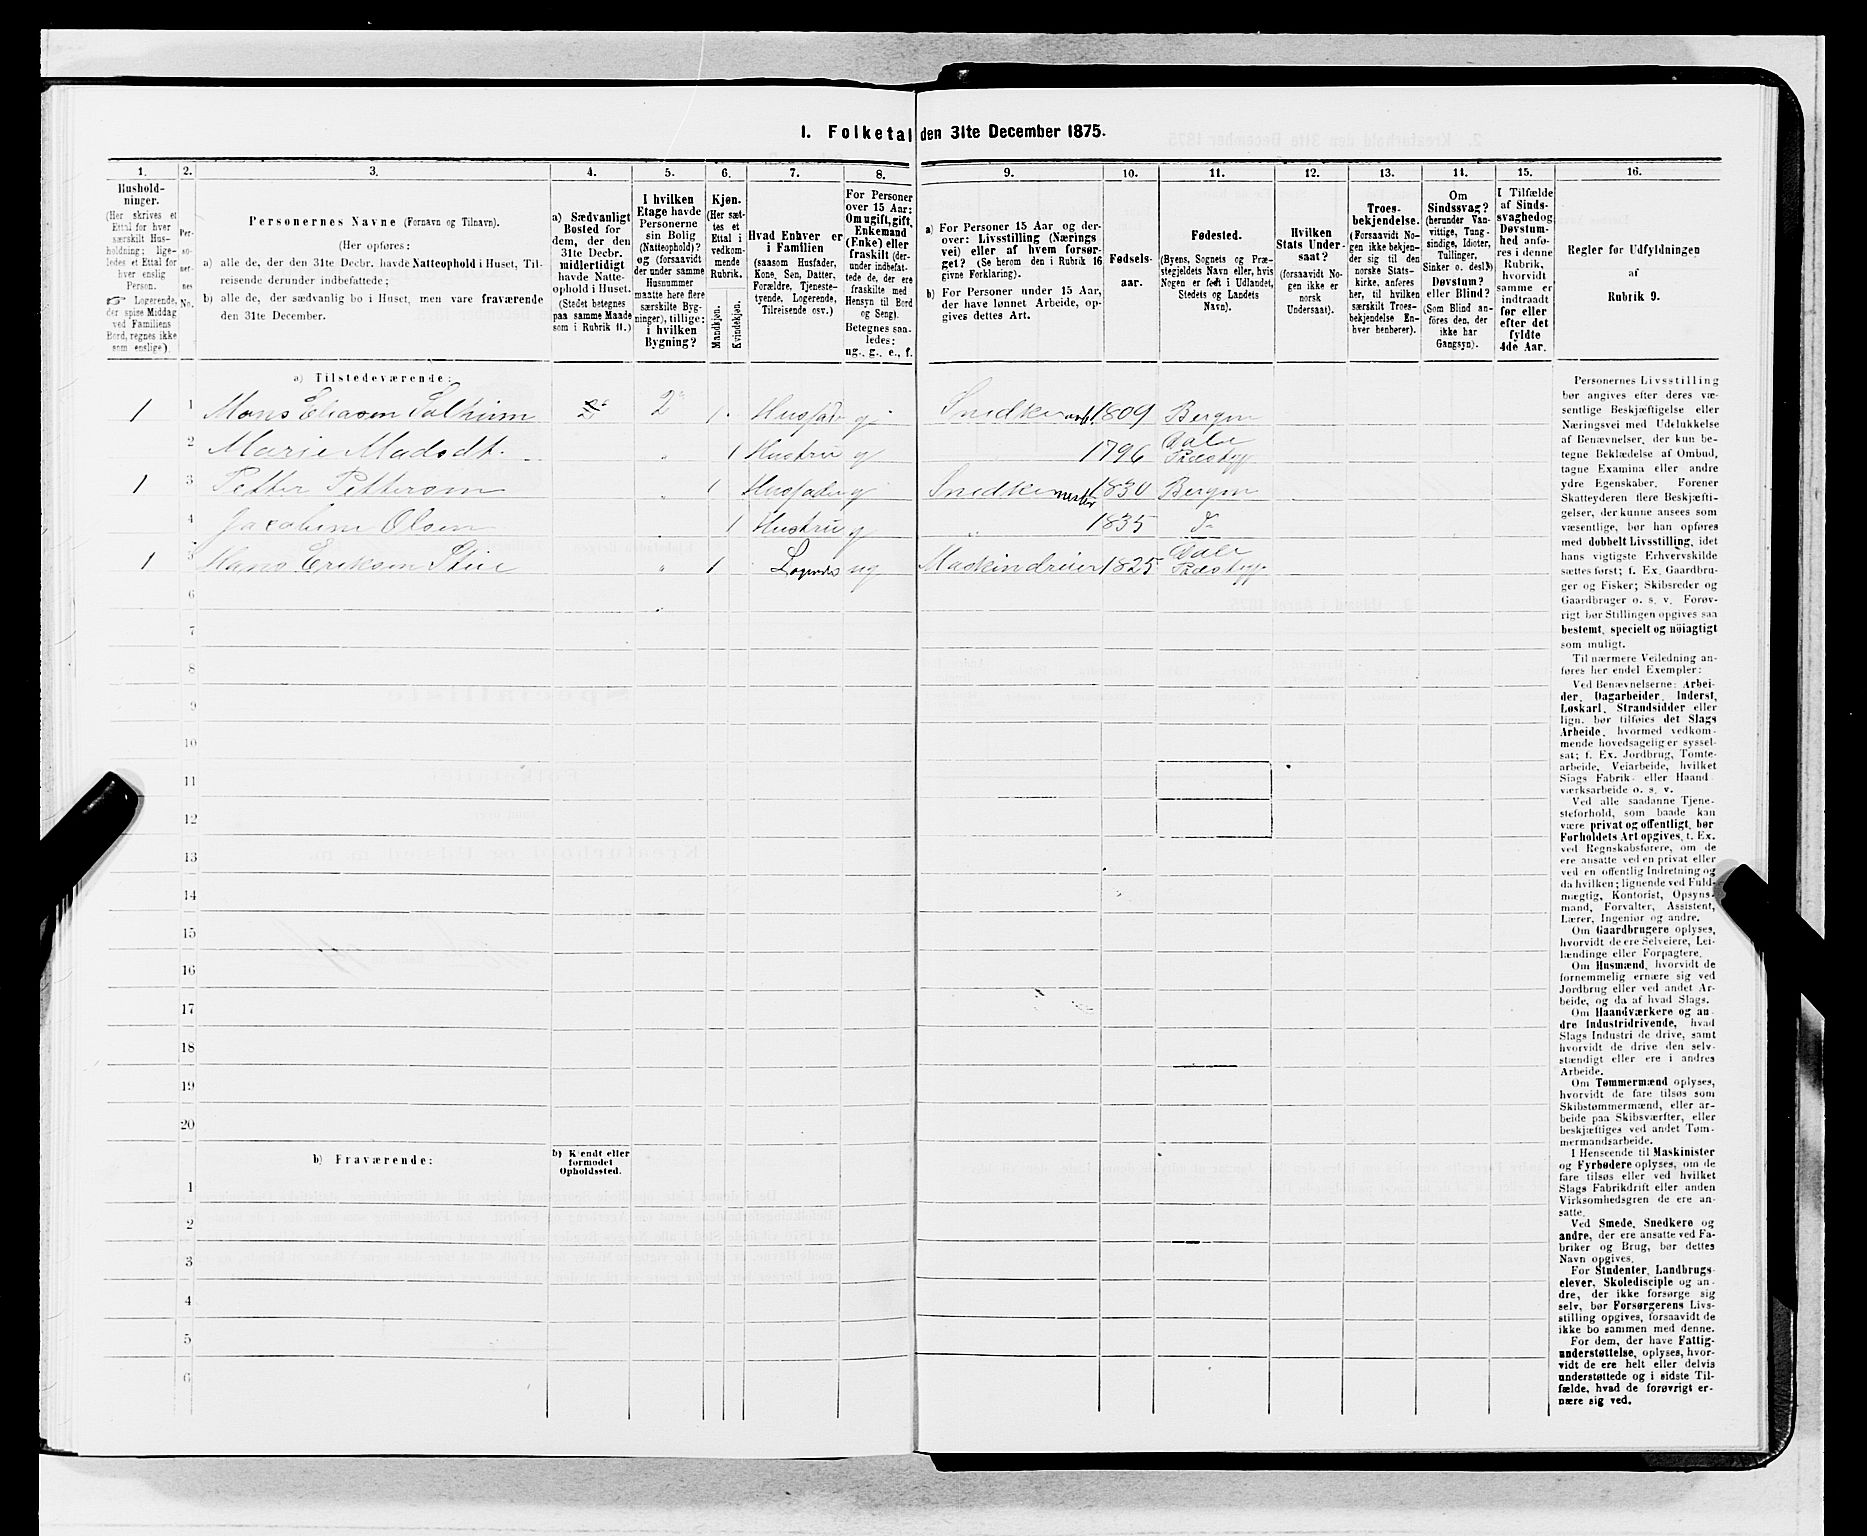 1. Folketal den 31te December 1875.
1. 2. 3. 4. 5. 6. 7. 8. 9. 10. 11. 12. 13. 14. 15. 16.
Hushold-
ninger.
(Her skrives et
Ettal for hver
særskilt Hus-
holdning; lige-
ledes et Ettal for
hver enslig
Person.
☞ Logerende,
der spise Middag
ved Familiens
Bord, regnes ikke
som enslige).
Per-
so-
ner-
nes
No.
Personernes Navne (Fornavn og Tilnavn).
(Her opføres:
a) alle de, der den 31te Decbr. havde Natteophold i Huset, Til-
reisende derunder indbefattede;
b) alle de, der sædvanlig bo i Huset, men vare fraværende
den 31te December.
a) Sædvanligt
Bosted for
dem, der den
31te Decbr.
midlertidigt
havde Natte-
ophold i Huset.
(Stedet betegnes
paa samme Maade
som i Rubrik 11.)
I hvilken
Etage havde
Personerne
sin Bolig
(Natteophold)?
og (forsaavidt
der under samme
Husnummer
maatte høre flere
særskilte Byg-
ninger), tillige:
i hvilken
Bygning?
Kjøn.
(Her sæt-
tes et
Ettal i
vedkom-
mende
Rubrik.
Mandkjøn.
Kvindekjøn.
Hvad Enhver er
i Familien
(saasom Husfader,
Kone, Søn, Datter,
Forældre, Tjeneste-
tyende, Logerende,
Tilreisende osv.)
For Personer
over 15 Aar:
Om ugift, gift,
Enkemand
(Enke) eller
fraskilt (der-
under indbefat-
tede de, der ere
fraskilte med
Hensyn til Bord
og Seng).
Betegnes saa-
ledes:
ug., g., e., f.
a) For Personer 15 Aar og der-
over: Livsstilling (Nærings
vei) eller af hvem forsør-
get? (Se herom den i Rubrik 16
givne Forklaring).
b) For Personer under 15 Aar,
der have lønnet Arbeide, op-
gives dettes Art.
Fødsels-
aar.
Fødested.
(Byens, Sognets og Præ-
stegjeldets Navn eller, hvis
Nogen er født i Udlandet,
Stedets og Landets
Navn).
Hvilken
Stats Under-
saat?
(forsaavidt No-
gen ikke er
norsk
Undersaat).
Troes-
bekjendelse.
(Forsaavidt No-
gen ikke bekjen-
der sig til den
norske Stats-
kirke, anføres
her, til hvilken
særskilt Troes-
bekjendelse En-
hver henhører).
Om
Sindssvag?
(herunder Van-
vittige, Tung-
sindige, Idioter,
Tullinger,
Sinker o. desl.)
Døvstum?
eller Blind?
(Som Blind an-
føres den, der
ikke har
Gangsyn).
I Tilfælde
af Sinds-
svaghed og
Døvstum-
hed anfø-
res i denne
Rubrik,
hvorvidt
samme er
indtraadt
før eller
efter det
fyldte
4de Aar.
Regler for Udfyldningen
af
Rubrik 9.
a) Tilstedeværende:
1 1 Mons Eliasen Solheim 2 1 Husfader g Snedker 1809 Bergen
2 Marie Madsdt. 1 Hustru g 1796 Dale Præstgj
1 3 Petter Pettersen 1 Husfader g Snedkermester 1830 Bergen
4 Jacobine Olsen 1 Hustru g 1835 D
1 5 Hans Eriksen 1 Logerende ug Maskindreier 1825 Dale Præstgj
6
7
8
9
10
11
12
13
14
15
16
17
18
19
20
b) Fraværende:
b) Kjendt eller
formodet
Opholdssted.
1
2
3
4
5
6
Personernes Livsstilling
bør angives efter deres væ-
sentlige Beskjæftigelse eller
Næringsvei med Udelukkelse
af Benævnelser, der kun be-
tegne Beklædelse af Ombud,
tagne Examina eller andre
ydre Egenskaber. Forener
Skatteyderen flere Beskjæfti-
gelser, der kunne ansees som
væsentlige, bør han opføres
med dobbelt Livsstilling, idet
hans vigtigste Erhvervskilde
sættes først; f. Ex. Gaardbru-
ger og Fisker; Skibsreder og
Gaardbruger o. s. v. Forøv-
rigt bør Stillingen opgives saa
bestemt, specielt og nöiagtigt
som muligt.
Til nærmere Veiledning an-
føres her endel Exempler:
Ved Benævnelserne: Arbei-
der, Dagarbeider, Inderst,
Løskarl, Strandsidder eller
lign. bør tilføies det Slags
Arbeide, hvormed vedkom-
mende hovedsagelig er syssel-
sat; f. Ex. Jordbrug, Tomte-
arbeide, Veiarbeide, hvilket
Slags Fabrik- eller Haand-
værksarbeide o. s. v.
Ved alle saadanne Tjene-
steforhold, som baade kan
være privat og offentligt, bør
Forholdets Art opgives, f. Ex.
ved Regnskabsførere, om de
ere ansatte ved en privat eller
ved en offentlig Indretning og
da hvilken; lignende ved Fuld-
mægtig, Kontorist, Opsyns-
mand, Forvalter, Assistent,
Lærer, Ingeniør og andre.
Om Gaardbrugere oplyses,
hvorvidt de ere Selveiere, Lei-
lændinge eller Forpagtere.
Om Husmænd, hvorvidt de
fornemmelig ernære sig ved
Jordbrug eller ved andet Ar-
beide, og da af hvad Slags.
Om Haandværkere og an-
dre Industridrivende, hvad
Slags Industri de drive, samt
hvorvidt de drive den selv-
stændigt eller ere i andres
Arbeide.
Om Tømmermænd oplyses,
hvorvidt de fare tilsøs som
Skibstømmermænd, eller ar-
beide paa Skibsværfter, eller
beskjæftiges ved andet Tøm-
mermandsarbeide.
I Henseende til Maskinister
og Fyrbødere oplyses, om de
fare tilsøs eller ved hvilket
Slags Fabrikdrift eller anden
Virksomhedsgren de ere an-
satte.
Ved Smede, Snedkere og
andre, der ere ansatte ved Fa-
briker og Brug, bør dettes
Navn opgives.
For Studenter, Landbrugs-
elever, Skoledisciple og an-
dre, der ikke forsørge sig
selv, bør Forsørgerens Livs-
stilling opgives, forsaavidt de
ikke bo sammen med denne.
For dem, der have Fattig-
understøttelse, oplyses, hvor-
vidt de ere helt eller delvis
understøttede og i sidste Til-
fælde, hvad de forøvrigt er-
nære sig ved.